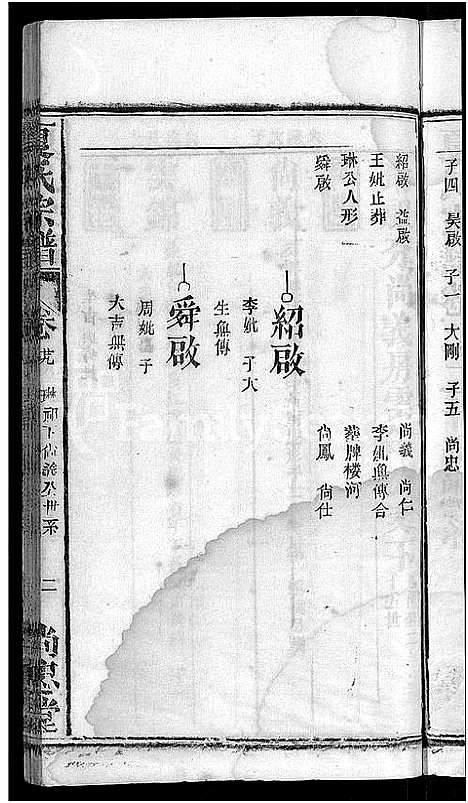 子四 昊啟 子一 大剛 子五 尚忠
紹啟 益啟 尚義 尚仁
王妣止葬 李妣無傳合
琳公人形 葬牌楼河
舜啟 尚鳳 尚仕
紹啟
李妣 子大
生無傳
舜啟
周妣 子
大吉無傳
夏氏宗譜 卷廿 琳祠下尚義公世系 二 尚忠堂